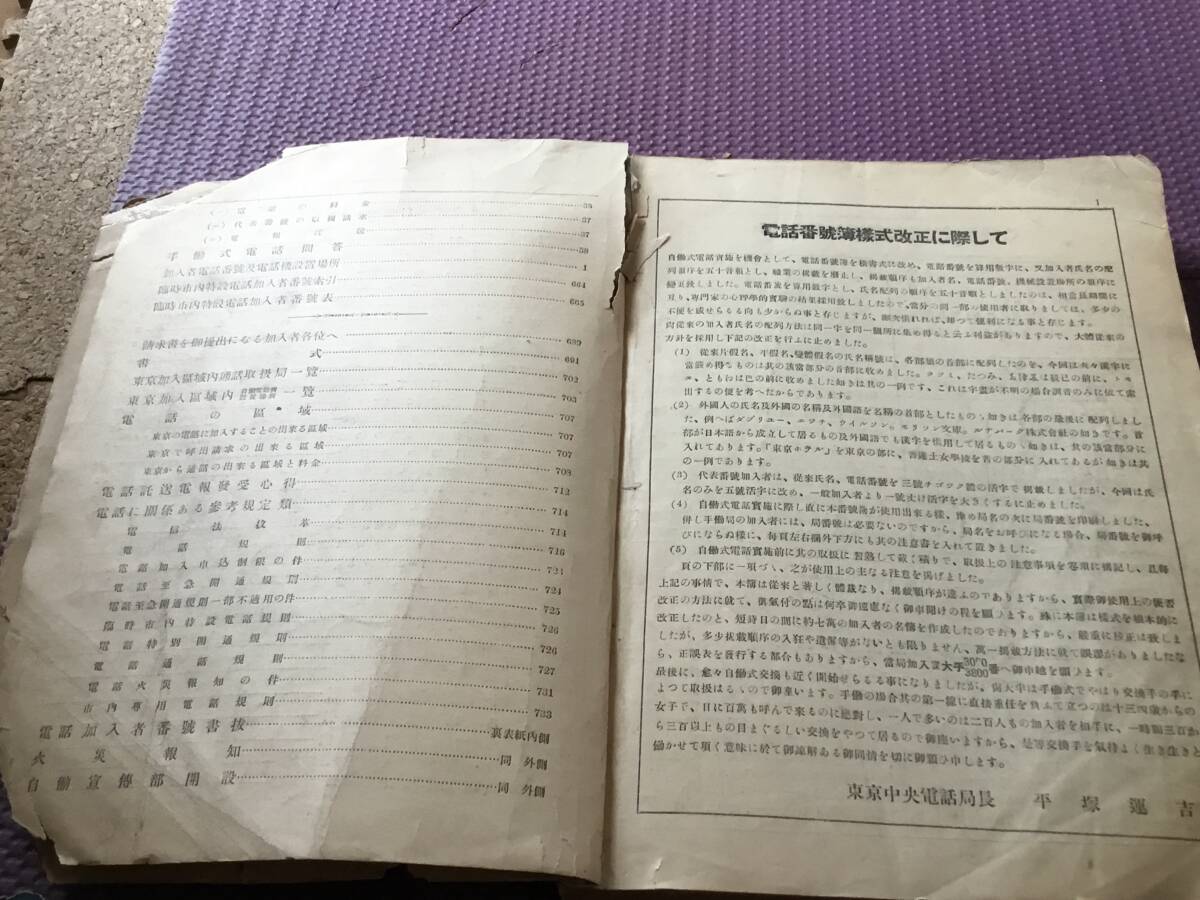 (一) 電話の料金 35
(二) 代表番號の取扱請求 37
37
手働式電話問答 38
加入者電話番號及電話機設置場所 1
臨時市內特設電話加入者番號索引 664
臨時市內特設電話加入者番號表 665
請求書を御提出になる加入者各位へ 689
書式 691
東京加入區域內通話取扱局一覽 702
東京加入區域內 一覽 703
電話の區域 707
東京の電話に加入することの出來る區域 707
東京で呼出請求の出來る區域 707
東京から通話の出來る區域と料金 708
電話託送電報發受心得 713
電話に關係ある參考規定類 714
電信法拔萃 714
電話規則 716
電話加入申込制限の件 724
電話至急開通規則 724
電話至急開通規則一部不適用の件 725
臨時市內特設電話規則 726
電話特別開通規則 726
電話通話規則 727
電話火災報知の件 731
市內專用電話規則 733
電話加入者番號書拔 裏表紙內側
火災報知 同外側
自働宣傳部開設 同外側
1
電話番號簿樣式改正に際して
自働式電話實施を機會として、電話番號簿を橫書式に改め、電話番號を算用數字に、又加入者氏名の配
列順序を五十音順とし、職業の揭載を廢止し、揭載順序も加入者名、電話番號、機械設置場所の順序に
變更致しました。電話番號を算用數字とし、氏名配列の順序を五十音順としましたのは、相當長期間に
亘り、專門家の心理學的實驗の結果採用致しましたので、當分の間一部の使用者に取りましては、多少の
不便を感ぜらるる向も少からぬ事と存じますが、漸次慣れれば、却つて便利になる事と存じます。
尙從來の加入者氏名の配列方法は同一字を同一個所に集め得ると云ふ利益がありますので、大體從來の
方針を採用し下記の改正を行ふに止めました。
(1) 從來片假名、平假名、變體假名の氏名稱號は、各部類の首部に配列したのを、今回は夫々漢字に
當嵌め得るものは其の該當部分の首部に收めました。
ゑ、ともゑは巴の前に收めました如きは其の一例です、これは字畫が不明の場合調音のみに依て索
出するの便を考へたからであります。
(2) 外國人の氏名及外國の名稱及外國語を名稱の首部としたものゝ如きは各部の最後に配列しまし
た、例へばダブリユー、エワチ、ウイルソン。モリソン文庫。ルナパーク株式會社の如きです。首
部が日本語から成立して居るもの及外國語でも漢字を使用して居るものゝ如きは、其の該當部分に
入れてあります。「東京ホテル」を東京の部に、普連土女學校を普の部分に入れてあるが如きは其
の一例であります。
(3) 代表番號加入者は、從來氏名、電話番號を三號チゴワク體の活字で揭載しましたが、今回は氏
名のみを五號活字に改め、一般加入者より一號丈け活字を大きくするに止めました。
(4) 自働式電話實施に際し直に本番號簿が使用出來る樣、豫め局名の次に局番號を印刷しました、
倂し手働局の加入者には、局番號は必要ないのですから、局名をお呼びになる場合、局番號を御呼
びにならぬ樣に、每頁左右欄外下方にも其の注意書を入れて置きました。
(5) 自働式電話實施前に其の取扱に習熟して戴く積りで、取扱上の注意事項を卷頭に揭記し、且每
頁の下部に一項づゝ、之が使用上の主なる注意を揭げました。
上記の事情で、本簿は從來と著しく體裁なり、揭載順序が違ふのでありますから、實際御使用上の後害
改正の方法に就て、御氣付の點は何卒御遠慮なく御申聞けの程を願ひます。殊に本簿は樣式を根本的に
改正したのと、短時日の間に約七萬の加入者の名簿を作成したのでありますから、嚴重に校正は致しま
したが、多少揭載順序の入狂や遺漏等がないとも限りません、萬一揭載方法に就て誤謬がありましたな
ら、正誤表を發行する都合もありますから、當局加入課大手3070 3800番へ御申越を願ひます。
最後に、愈々自働式交換も近く開始せらるる事になりましたが、尙大半は手働式でやはり交換手の手に
よつて取扱はるゝので御座います。手働の場合其の第一線に直接重任を負ふて立つのは十三四歲からの
女子で、日に百萬も呼んで來るのに絕對し、一人で多いのは二百人もの加入者を相手に、一時間三百か
ら三百以上もの目まぐるしい交換をやつて居るので御座いますから、是等交換手を氣持よく生き生きと
働かせて頂く意味に於て御諒解ある御同情を切に御願ひ申します。
東京中央電話局長 平塚運吉